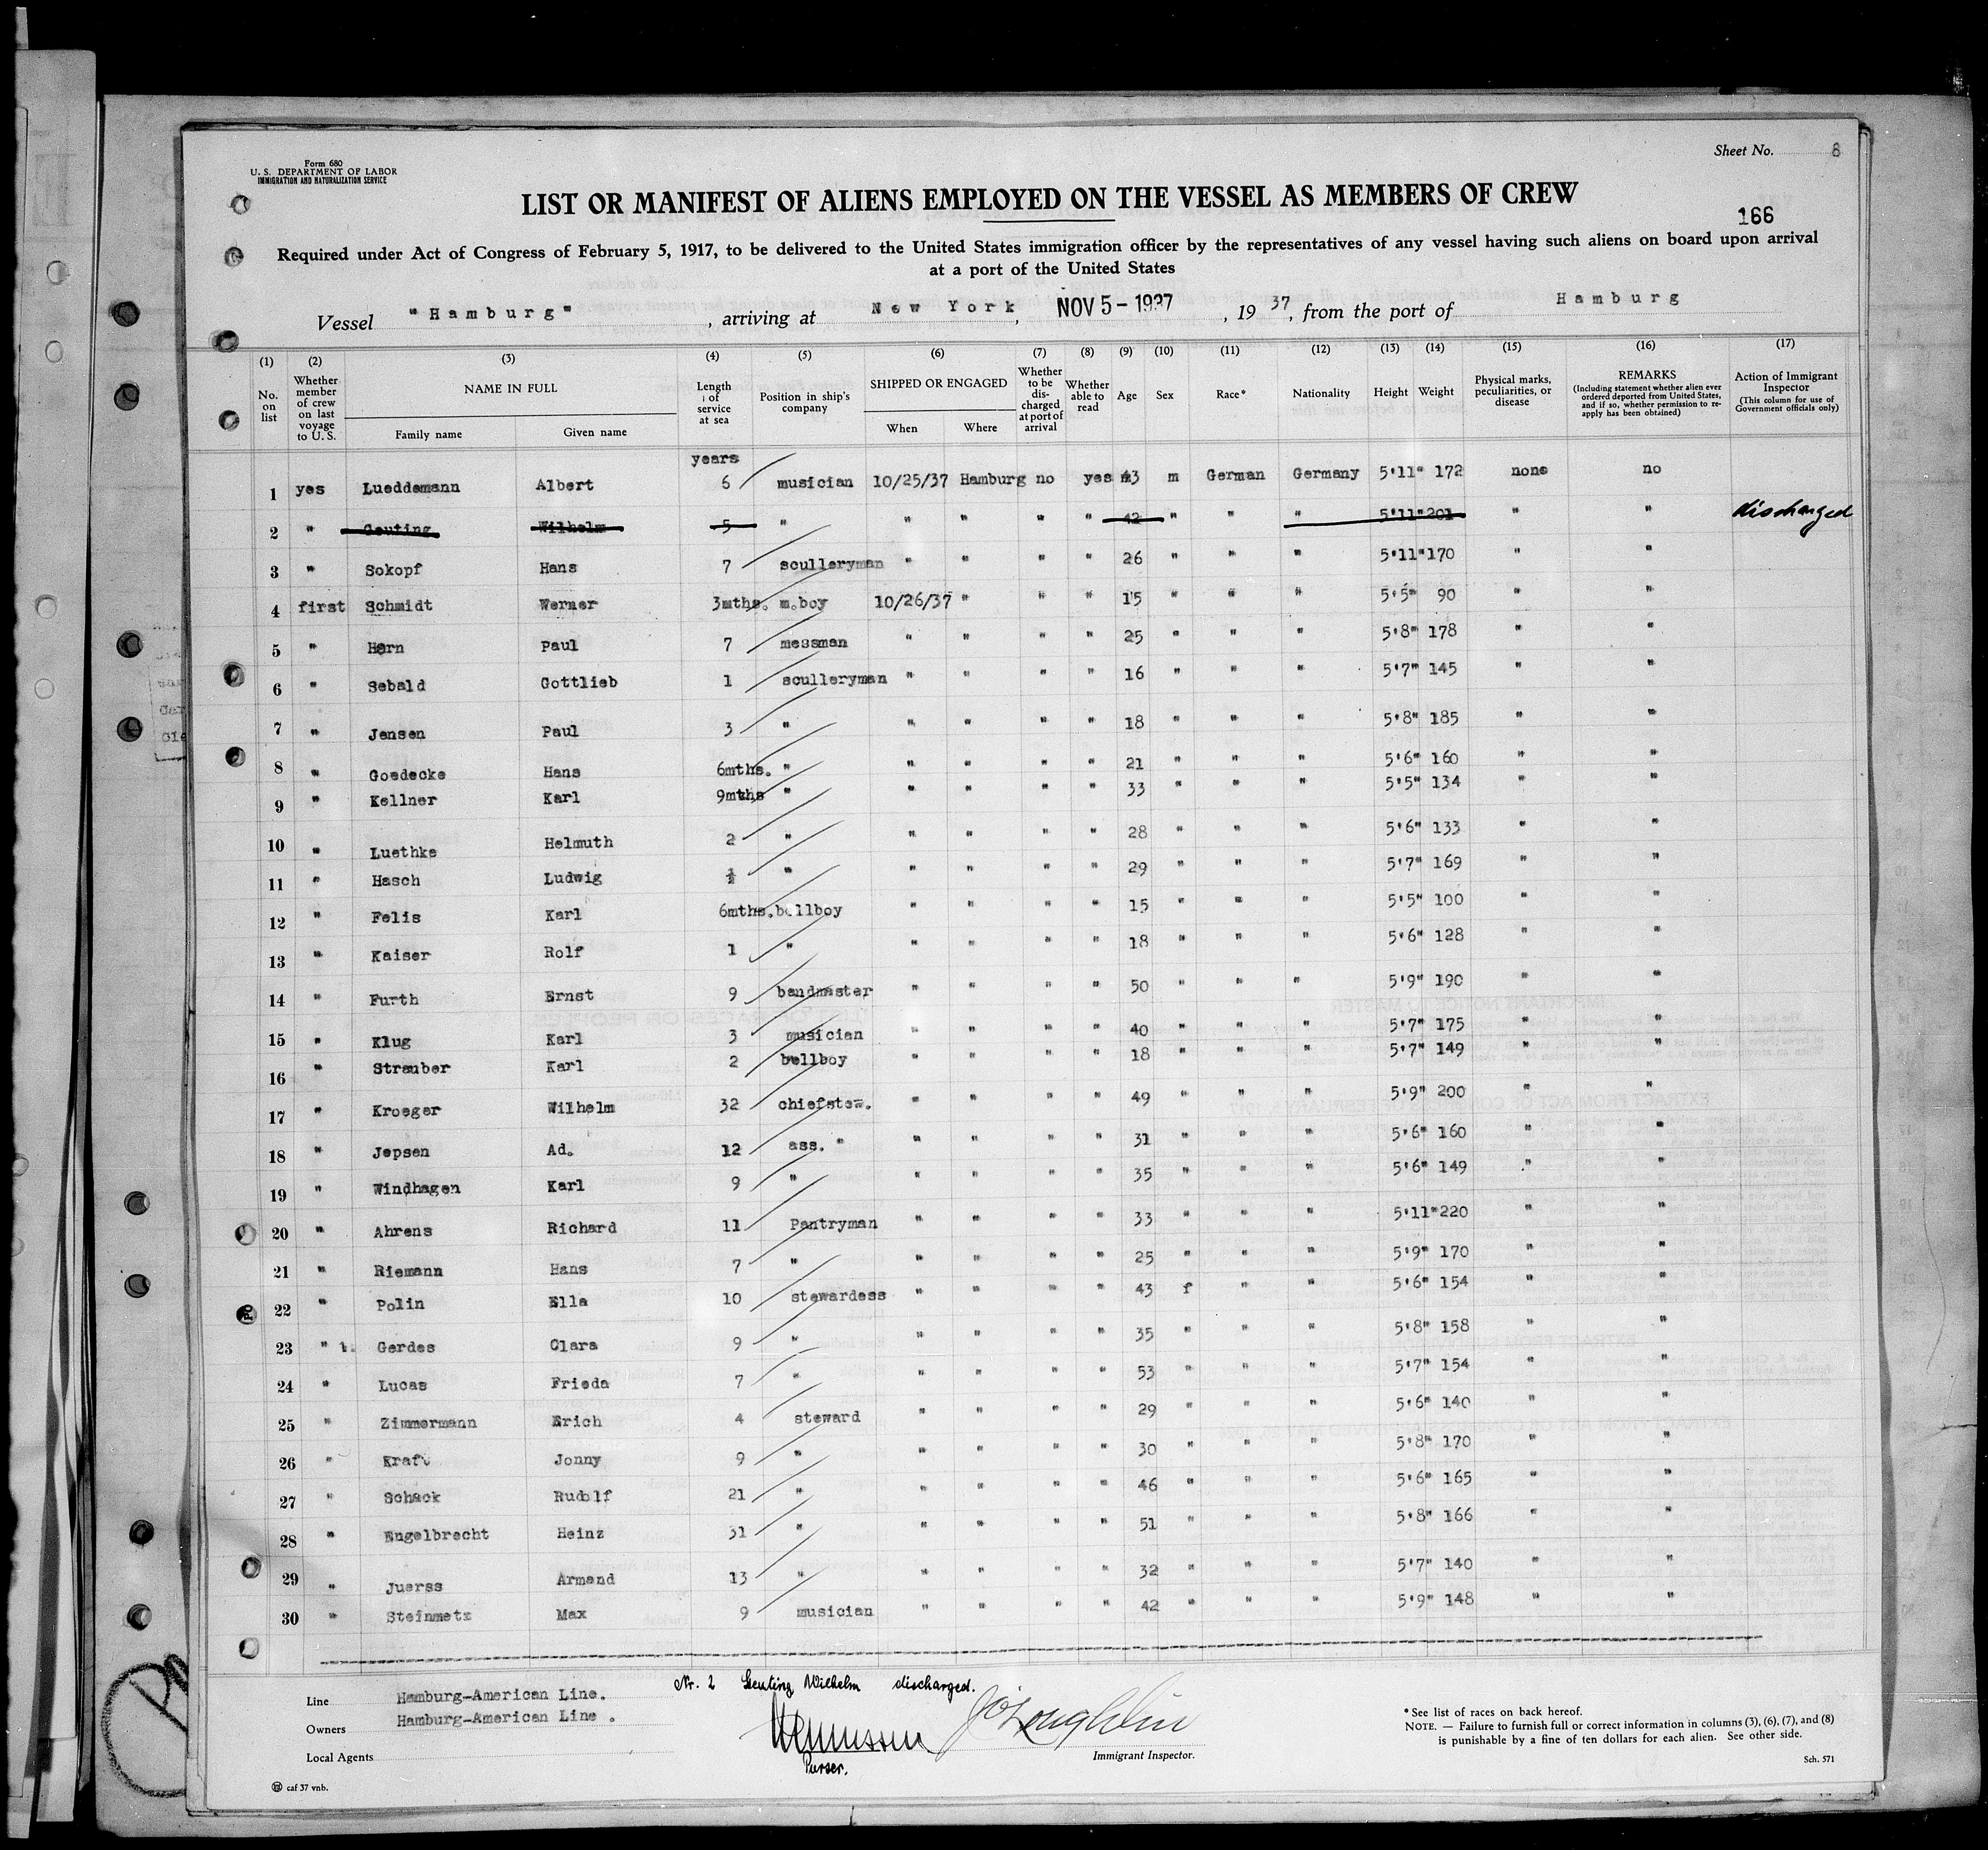 Form 680
U. S. DEPARTMENT OF LABOR
IMMIGRATION AND NATURALIZATION SERVICE
Sheet No. 8
LIST OR MANIFEST OF ALIENS EMPLOYED ON THE VESSEL AS MEMBERS OF CREW
166
Required under Act of Congress of February 5, 1917, to be delivered to the United States immigration officer by the representatives of any vessel having such aliens on board upon arrival
at a port of the United States
Vessel "Hamburg", arriving at New York, NOV 5 - 1937, 19 37, from the port of Hamburg
(1) (2) (3) (4) (5) (6) (7) (8) (9) (10) (11) (12) (13) (14) (15) (16) (17)
No. on list Whether member of crew on last voyage to U. S. NAME IN FULL Family name Given name Length of service at sea Position in ship's company SHIPPED OR ENGAGED When Where Whether to be discharged at port of arrival Whether able to read Age Sex Race* Nationality Height Weight Physical marks, peculiarities, or disease REMARKS (Including statement whether alien ever ordered deported from United States, and if so, whether permission to reapply has been obtained) Action of Immigrant Inspector (This column for use of Government officials only)
years
1 yes Lueddemann Albert 6 musician 10/25/37 Hamburg no yes 43 m German Germany 5'11" 172 none no
2 " Geuting Wilhelm 5 " " " " " 42 " " " 5'11" 201 " " discharged
3 " Sokopf Hans 7 sculleryman " " " " 26 " " " 5'11" 170 " "
4 first Schmidt Werner 3mths. m.boy 10/26/37 " " " 15 " " " 5'5" 90 " "
5 " Horn Paul 7 messman " " " " 25 " " " 5'8" 178 " "
6 " Sebald Gottlieb 1 sculleryman " " " " 16 " " " 5'7" 145 " "
7 " Jensen Paul 3 " " " " " 18 " " " 5'8" 185 " "
8 " Goedecke Hans 6mths. " " " " " 21 " " " 5'6" 160 " "
9 " Kellner Karl 9mths " " " " " 33 " " " 5'5" 134 " "
10 " Luethke Helmuth 2 " " " " " 28 " " " 5'6" 133 " "
11 " Hasch Ludwig ½ " " " " " 29 " " " 5'7" 169 " "
12 " Felis Karl 6mths. bellboy " " " " 15 " " " 5'5" 100 " "
13 " Kaiser Rolf 1 " " " " " 18 " " " 5'6" 128 " "
14 " Furth Ernst 9 bandmaster " " " " 50 " " " 5'9" 190 " "
15 " Klug Karl 3 musician " " " " 40 " " " 5'7" 175 " "
16 " Strauber Karl 2 bellboy " " " " 18 " " " 5'7" 149 " "
17 " Kroeger Wilhelm 32 chiefstew. " " " " 49 " " " 5'9" 200 " "
18 " Jepsen Ad. 12 ass. " " " " " 31 " " " 5'6" 160 " "
19 " Windhagen Karl 9 " " " " " 35 " " " 5'6" 149 " "
20 " Ahrens Richard 11 Pantryman " " " " 33 " " " 5'11" 220 " "
21 " Riemann Hans 7 " " " " " 25 " " " 5'9" 170 " "
22 " Polin Ella 10 stewardess " " " " 43 f " " 5'6" 154 " "
23 " Gerdes Clara 9 " " " " " 35 " " " 5'8" 158 " "
24 " Lucas Frieda 7 " " " " " 53 " " " 5'7" 154 " "
25 " Zimmermann Erich 4 steward " " " " 29 " " " 5'6" 140 " "
26 " Kraft Jonny 9 " " " " " 30 " " " 5'8" 170 " "
27 " Schack Rudolf 21 " " " " " 46 " " " 5'6" 165 " "
28 " Engelbrecht Heinz 31 " " " " " 51 " " " 5'8" 166 " "
29 " Juerss Armand 13 " " " " " 32 " " " 5'7" 140 " "
30 " Steinmetz Max 9 musician " " " " 42 " " " 5'9" 148 " "
Nr. 2 Geuting Wilhelm discharged.
Line Hamburg-American Line.
Owners Hamburg-American Line .
Local Agents
Purser.
Immigrant Inspector.
*See list of races on back hereof.
NOTE. — Failure to furnish full or correct information in columns (3), (6), (7), and (8)
is punishable by a fine of ten dollars for each alien. See other side.
Sch. 571
caf 37 vnb.